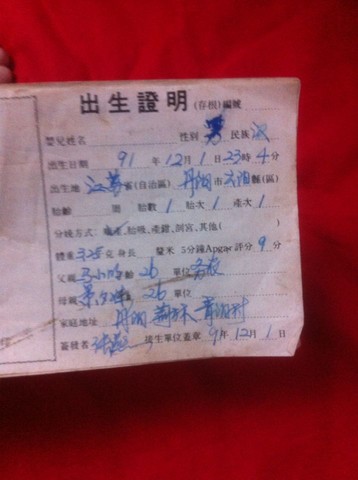 出生證明(存根)編號
嬰兒姓名 性別 男 民族 汉
出生日期 91 年 12 月 1 日 23 時 4 分
出生地 江苏 省(自治區) 丹阳 市 縣(區)
胎齡 周 胎數 1 胎次 1 產次 1
分娩方式: 產、胎吸、產鉗、剖宮、其他( )
體重 325 克 身長 釐米 5分鐘Apgar評分 9 分
父親 齡 26 單位 务农
母親 26 單位
家庭地址 丹阳 村
簽發者 接生單位蓋章 91 年 12 月 1 日